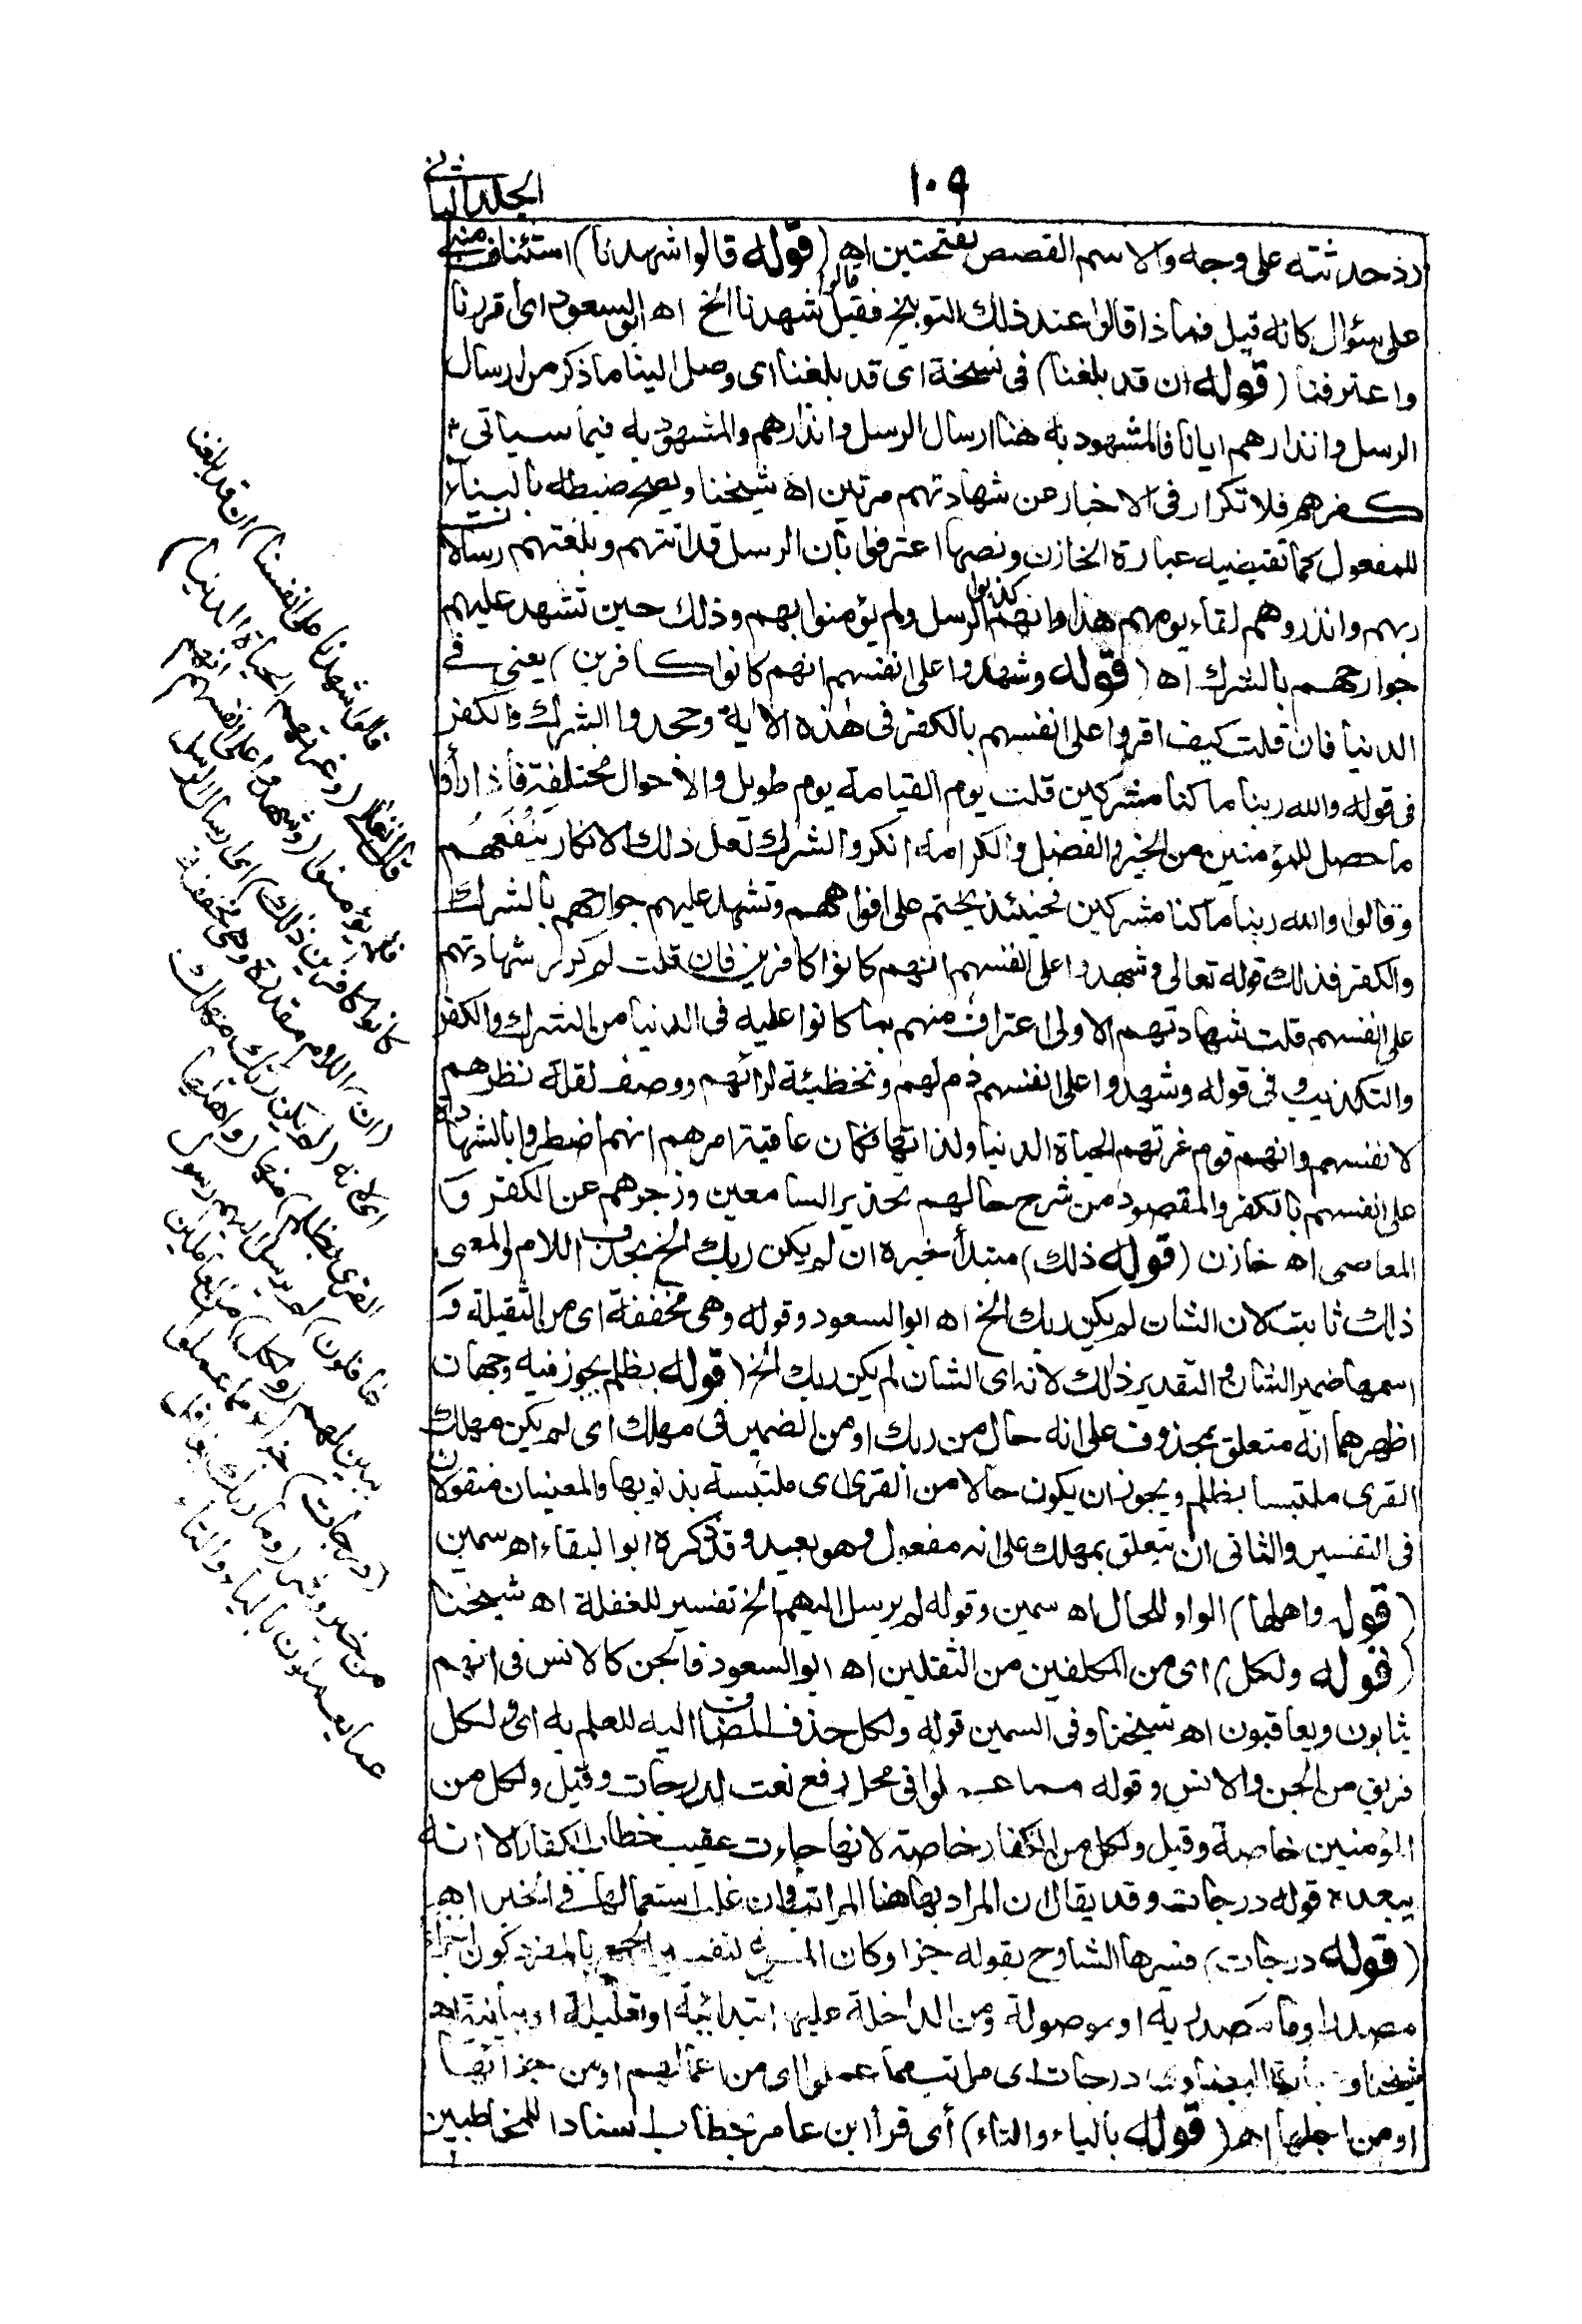 ١٠٩
الجلد الثاني
اذ حدثته على وجهه والاسم القصص بفتحتين اه (قوله قالوا شهدنا) استئناف مبني
على سؤال كانه قيل فماذا قالوا عند ذلك التوبيخ فقيل قالوا شهدنا الخ اه ابو السعود اى اقررنا
واعترفنا (قوله ان قد بلغنا) فى نسخة اى قد بلغنا اى وصل الينا ما ذكر من ارسال
الرسل وانذارهم ايانا فالمشهود به هنا ارسال الرسل وانذارهم والمشهود به فيما سياتى
كفرهم فلا تكرار فى الاخبار عن شهادتهم مرتين اه شيخنا ويصح ضبطه بالبناء
للمفعول كما تقتضيه عبارة الخازن ونصها اعترفوا بان الرسل قد اتتهم وبلغتهم رسالات
ربهم وانذروهم لقاء يومهم هذا وانهم كذبوا الرسل ولم يؤمنوا بهم وذلك حين تشهد عليهم
جوارحهم بالشرك اه (قوله وشهدوا على انفسهم انهم كانوا كافرين) يعنى فى
الدنيا فان قلت كيف اقروا على انفسهم بالكفر فى هذه الاية وجحدوا الشرك والكفر
فى قوله والله ربنا ما كنا مشركين قلت يوم القيامة يوم طويل والاحوال مختلفة فاذا رأوا
ما حصل للمؤمنين من الخير والفضل والكرامة انكروا الشرك لعل ذلك الانكار ينفعهم
وقالوا والله ربنا ما كنا مشركين فحينئذ يختم على افواههم وتشهد عليهم جوارحهم بالشرك
والكفر فذلك قوله تعالى وشهدوا على انفسهم انهم كانوا كافرين فان قلت لم كرر شهادتهم
على انفسهم قلت شهادتهم الاولى اعتراف منهم بما كانوا عليه فى الدنيا من الشرك والكفر
والتكذيب وفى قوله وشهدوا على انفسهم ذم لهم وتخطيئة لرائهم ووصف لقلة نظرهم
لانفسهم وانهم قوم غرتهم الحياة الدنيا ولذاتها فكان عاقبة امرهم انهم اضطروا بالشهادة
على انفسهم بالكفر والمقصود من شرح حالهم تحذير السامعين وزجرهم عن الكفر و
المعاصى اه خازن (قوله ذلك) مبتدأ خبره ان لم يكن ربك الخ بحذف اللام والمعنى
ذلك ثابت لان الشان لم يكن ربك الخ اه ابو السعود وقوله وهى مخففة اى من الثقيلة و
اسمها ضمير الشان والتقدير ذلك لانه اى الشان لم يكن ربك الخ (قوله بظلم يجوز فيه وجهان
اظهرهما انه متعلق بمحذوف على انه حال من ربك او من الضمير فى مهلك اى لم يكن مهلك
القرى ملتبسا بظلم ويجوز ان يكون حالا من القرى اى ملتبسة بذنوبها والمعنيان منقولان
فى التفسير والثانى ان يتعلق بمهلك على انه مفعول وهو بعيد وقد ذكره ابو البقاء اه سمين
(قوله واهلها) الواو للحال اه سمين وقوله لم يرسل اليهم الخ تفسير للغفلة اه شيخنا
(قوله ولكل) اى من المكلفين من الثقلين اه ابو السعود فالجن كالانس فى انهم
يثابون ويعاقبون اه شيخنا وفى السمين قوله ولكل حذف المضاف اليه للعلم به اى ولكل
فريق من الجن والانس وقوله مما عملوا فى محل رفع نعت لدرجات وقيل ولكل من
المؤمنين خاصة وقيل ولكل من الكفار خاصة لانها جاءت عقيب خطاب الكفار الا انه
يبعده قوله درجات وقد يقال ان المراد بها هنا المراتب وان غلب استعمالها فى الخير اه
(قوله درجات) فسرها الشارح بقوله جزاء وكان المسوغ لتفسير الجمع بالمفرد كون الجزاء
مصدرا وما مصدرية او موصولة ومن الداخلة عليها ابتدائية او تعليلية او بيانية اه
شيخنا وعبارة البيضاوى درجات اى مراتب مما عملوا اى من اعمالهم او من جزائها
او من اجلها اه (قوله بالياء والتاء) أى قرأ ابن عامر بخطاب اسنادا للمخاطبين
قالوا شهدنا على انفسنا) ان قد بلغنا
قال تعالى (وغرتهم الحياة الدنيا)
فلم يؤمنوا (وشهدوا على انفسهم انهم
كانوا كافرين ذلك) اى ارسال الرسل
(ان) اللام مقدرة وهى مخففة
اى لانه (لم يكن ربك مهلك
القرى بظلم) منها (واهلها
غافلون) لم يرسل اليهم رسول
يبين لهم (ولكل) من العاملين
(درجات) جزاء (مما عملوا)
من خير وشر (وما ربك بغافل
عما يعملون بالياء والتاء